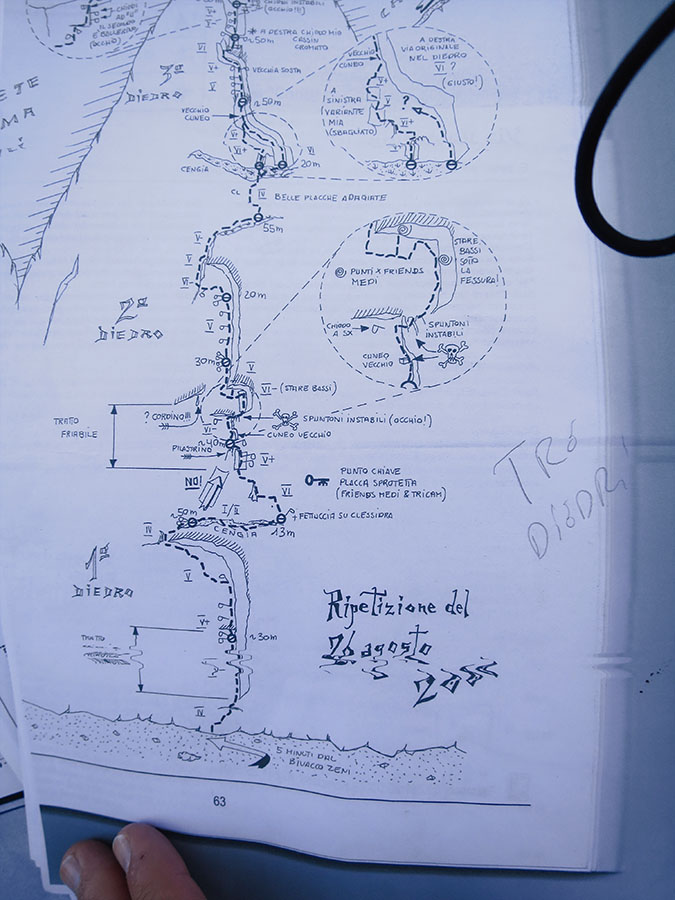 CHIODI
IL SECONDO
È BALLERINO
(OCCHIO)
CHIODI INSTABILI
(OCCHIO!!!)
~50m
A DESTRA CHIODO MIO
CASSIN
CROMATO
VI
V+
VECCHIA SOSTA
3° DIEDRO
~50m
VECCHIO
CUNEO
VI+
VI
20m
CENGIA
VECCHIO
CUNEO
A DESTRA
VIA ORIGINALE
NEL DIEDRO
VI ?
(GIUSTO!)
V+
?
A
SINISTRA
(VARIANTE
MIA
(SBAGLIATO)
VI+
CL
IV
BELLE PLACCHE ADAGIATE
55m
V
VI-
20m
2° DIEDRO
V
30m
V
STARE
BASSI
SOTTO
LA
FESSURA!
PUNTI X FRIENDS
MEDI
CHIODO
A SX
SPUNTONI
INSTABILI
CUNEO
VECCHIO
VI- (STARE BASSI)
? CORDINO!!!
SPUNTONI INSTABILI (OCCHIO!)
TRATTO
FRIABILE
VI-
CUNEO VECCHIO
~40m
PILASTRINO
V+
NO!
VI
PUNTO CHIAVE
PLACCA SPROTETTA
(FRIENDS MEDI & TRICAM)
~50m
I/II
FETTUCCIA SU CLESSIDRA
CENGIA
13m
IV
1° DIEDRO
V
V+
~30m
TRATTO
IV
Ripetizione del
26 agosto
TRE
DIEDRI
5 MINUTI DAL
BIVACCO ZENI
63